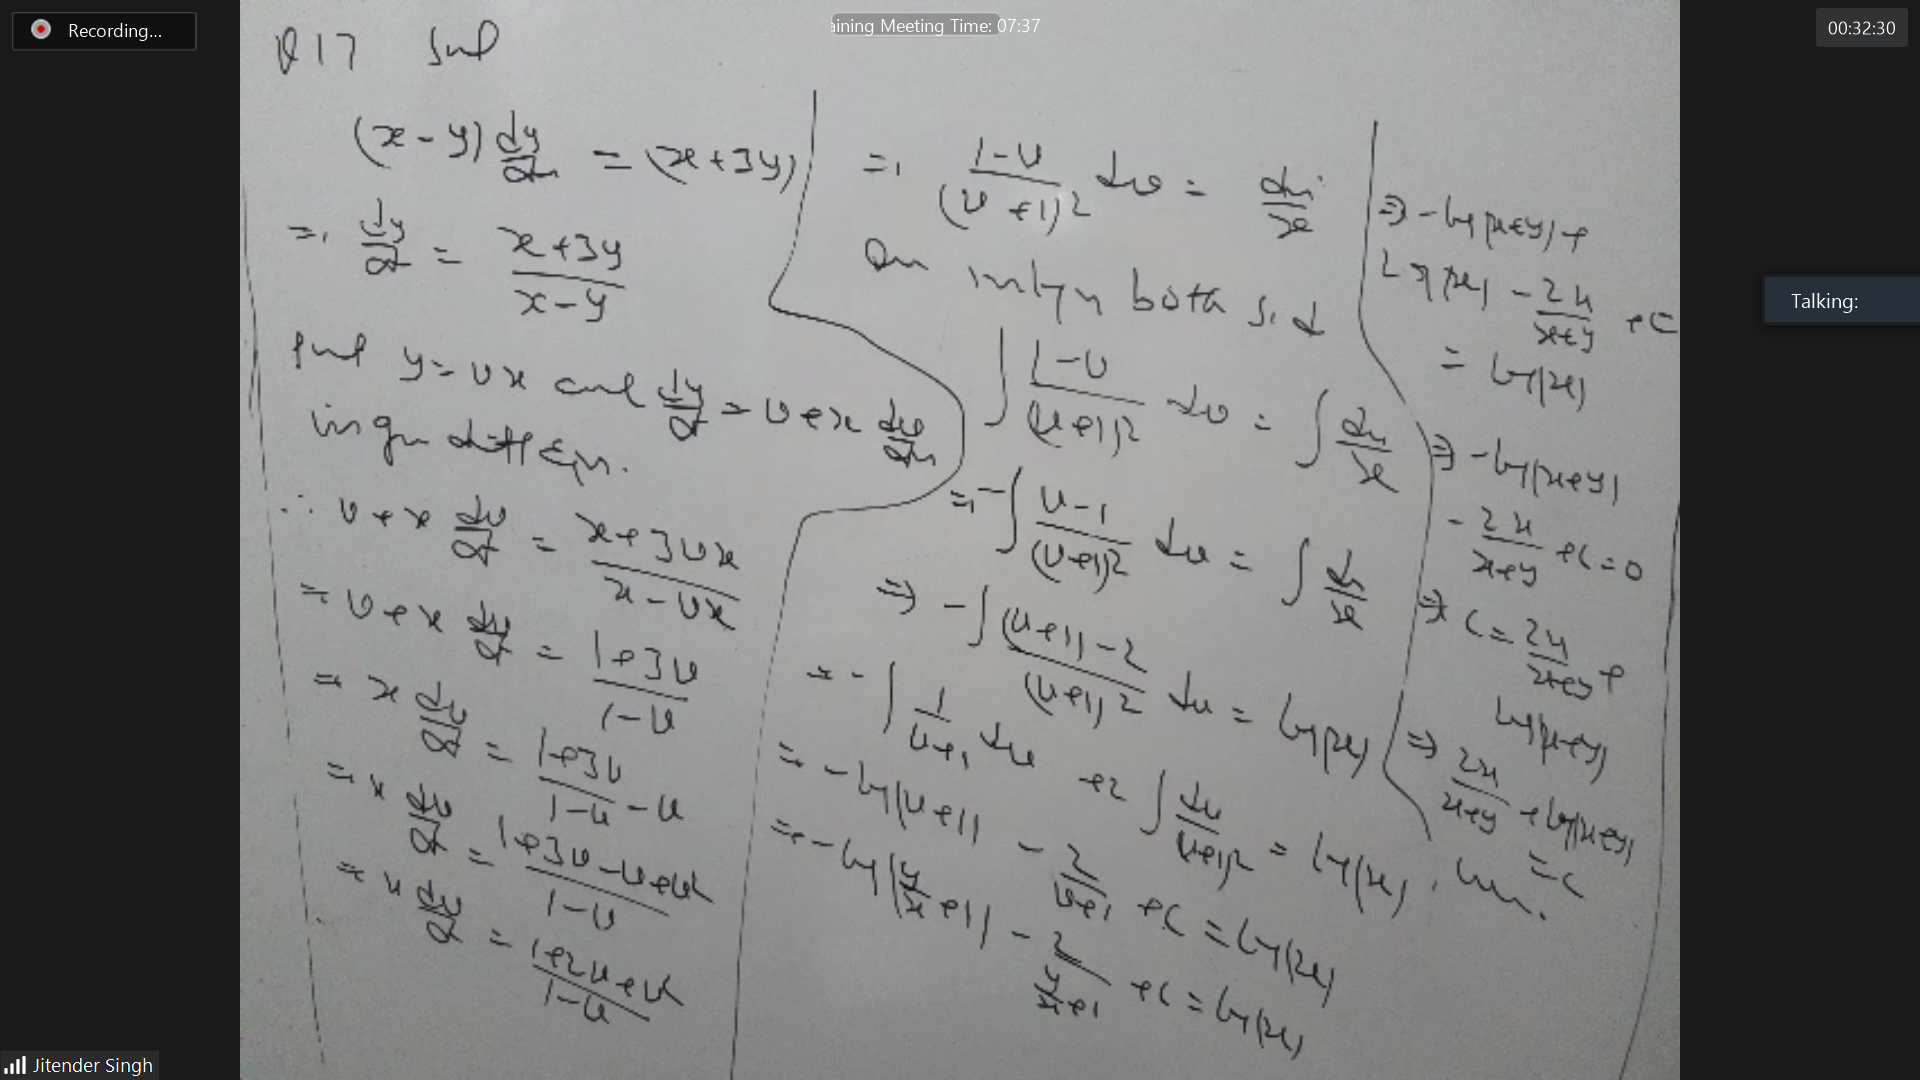 Recording...
aining Meeting Time: 07:37
00:32:30
Talking:
Jitender Singh
Q17 Sol
(x-y) dy/dx = (x+3y)
=> dy/dx = (x+3y)/(x-y)
put y=vx and dy/dx = v+x dv/dx
in diff Eqn.
∴ v+x dv/dx = (x+3vx)/(x-vx)
= v+x dv/dx = (1+3v)/(1-v)
= x dv/dx = (1+3v)/(1-v) - v
= x dv/dx = (1+3v-v+v²)/(1-v)
= x dv/dx = (1+2v+v²)/(1-v)
=> (1-v)/(v+1)² dv = dx/x
On both sid
∫ (1-v)/(v+1)² dv = ∫ dx/x
=> -∫ (v-1)/(v+1)² dv = ∫ dx/x
=> -∫ ((v+1)-2)/(v+1)² dv = log|x|
= -∫ 1/(v+1) dv + 2 ∫ dv/(v+1)² = log|x|
= -log|v+1| - 2/(v+1) + C = log|x|
=> -log|y/x+1| - 2/(y/x+1) + C = log|x|
=> -log|x+y| +
log|x| - 2x/(x+y) + C
= log|x|
=> -log|x+y|
- 2x/(x+y) + C = 0
=> C = 2x/(x+y) +
log|x+y|
=> 2x/(x+y) + log|x+y|
= C